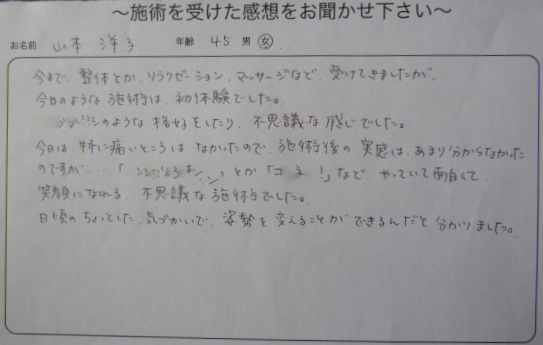 ～施術を受けた感想をお聞かせ下さい～
お名前 山本 洋子 年齢 45 男 女
今まで、整体とか、リラクゼーション、マッサージなど、受けてきましたが、
今日のような施術は、初体験でした。
のような格好をしたり、不思議な感じでした。
今日は、特に痛いところはなかったので、施術後の実感は、あまり分からなかった
のですが…、「 」とか「 」など、やっていて面白くて、
笑顔になれる、不思議な施術でした。
日頃のちょっとした、気づかいで、姿勢を変えることができるんだと分かりました。